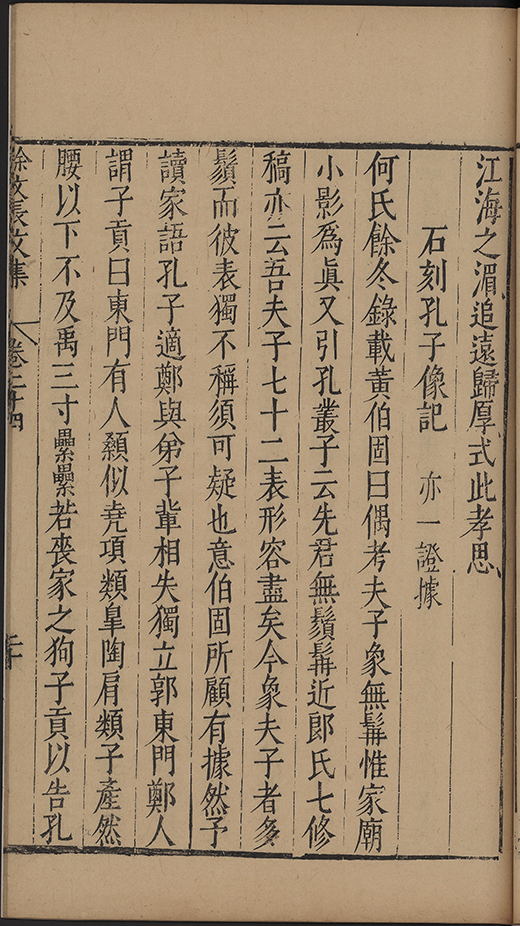 江海之湄追遠歸厚式此孝思
石刻孔子像記 亦一證據
何氏餘冬錄載黃伯固曰偶考夫子象無髯惟家廟
小影爲眞又引孔叢子云先君無鬚髯近郎氏七修
稿亦云吾夫子七十二表形容盡矣今象夫子者多
鬚而彼表獨不稱須可疑也意伯固所顧有據然予
讀家語孔子適鄭與弟子輩相失獨立郭東門鄭人
謂子貢曰東門有人顙似堯項類皐陶肩類子產然
腰以下不及禹三寸纍纍若喪家之狗子貢以告孔
徐文長文集 卷二十四 二十